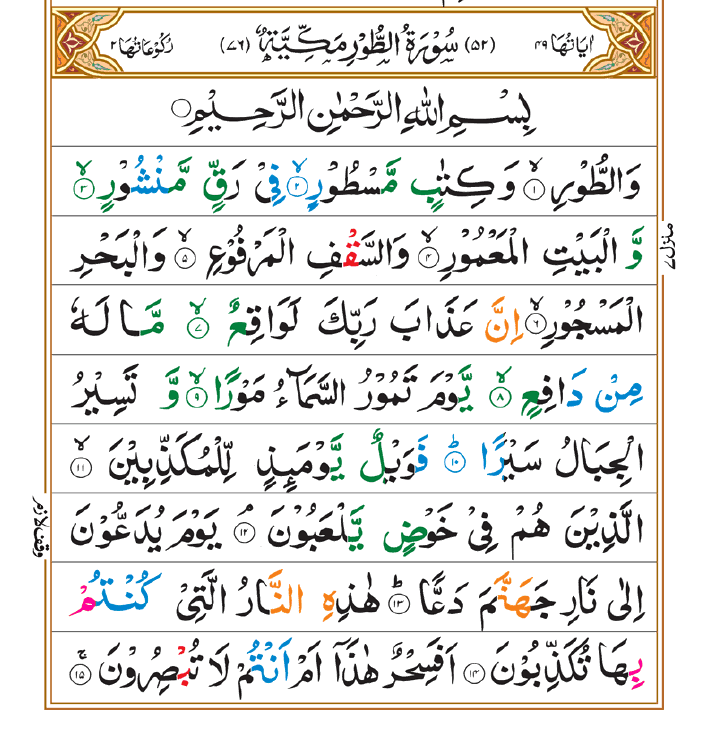 اٰيَاتُهَا ٤٩ (٥٢) سُوْرَةُ الطُّوْرِ مَكِّيَّةٌ (٧٦) رُكُوْعَاتُهَا ٢
بِسْمِ اللّٰهِ الرَّحْمٰنِ الرَّحِيْمِ
وَالطُّوْرِ ۙ﴿١﴾ وَكِتٰبٍ مَّسْطُوْرٍ ۙ﴿٢﴾ فِيْ رَقٍّ مَّنْشُوْرٍ ۙ﴿٣﴾
وَّ الْبَيْتِ الْمَعْمُوْرِ ۙ﴿٤﴾ وَالسَّقْفِ الْمَرْفُوْعِ ۙ﴿٥﴾ وَالْبَحْرِ
منزل ٧
الْمَسْجُوْرِ ۙ﴿٦﴾ اِنَّ عَذَابَ رَبِّكَ لَوَاقِعٌ ۙ﴿٧﴾ مَّا لَهٗ
مِنْ دَافِعٍ ۙ﴿٨﴾ يَّوْمَ تَمُوْرُ السَّمَآءُ مَوْرًا ۙ﴿٩﴾ وَّ تَسِيْرُ
الْجِبَالُ سَيْرًا ؕ﴿١٠﴾ فَوَيْلٌ يَّوْمَئِذٍ لِّلْمُكَذِّبِيْنَ ۙ﴿١١﴾
الَّذِيْنَ هُمْ فِيْ خَوْضٍ يَّلْعَبُوْنَ ۘ﴿١٢﴾ يَوْمَ يُدَعُّوْنَ
وقف لازم
اِلٰى نَارِ جَهَنَّمَ دَعًّا ؕ﴿١٣﴾ هٰذِهِ النَّارُ الَّتِيْ كُنْتُمْ
بِهَا تُكَذِّبُوْنَ ﴿١٤﴾ اَفَسِحْرٌ هٰذَآ اَمْ اَنْتُمْ لَا تُبْصِرُوْنَ ۚ﴿١٥﴾